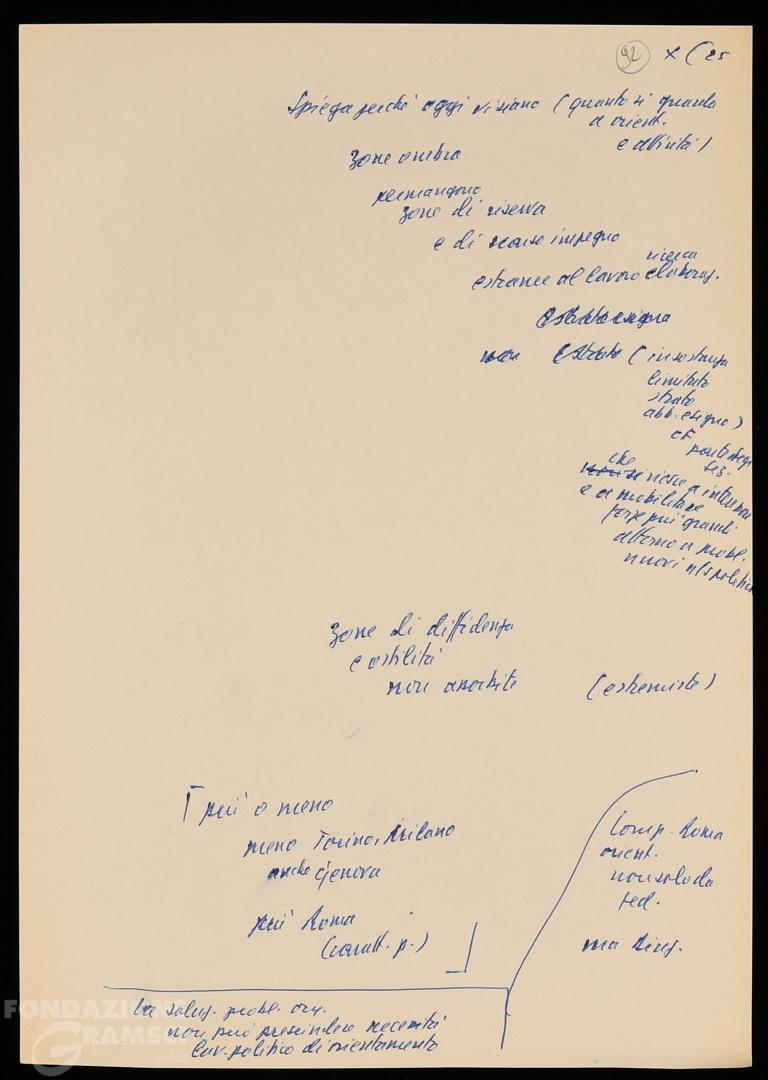 92 x (25
Spiega perché oggi vi siano (quanto si guarda
a orient.
e attività)
zone ombra
permangono
zone di riserva
e di scarso impegno
ricerca
estranee al lavoro elaboraz.
Estrato esiguo
non Estrato (in sostanza
limitato
strato
abb. esiguo)
CF
che
non si riesce a interessare
e a mobilitare
forze più grandi
attorno a probl.
nuovi
zone di diffidenza
e ostilità
non assorbite (estremiste)
più o meno
meno Torino, Milano
anche Genova
più Roma
(caratt. p.)
Comp. Roma
orient.
non solo da
fed.
ma
La soluz. probl. org.
non può prescindere necessità
lav. politico di orientamento
FONDAZIONE
GRAMSCI
onlus